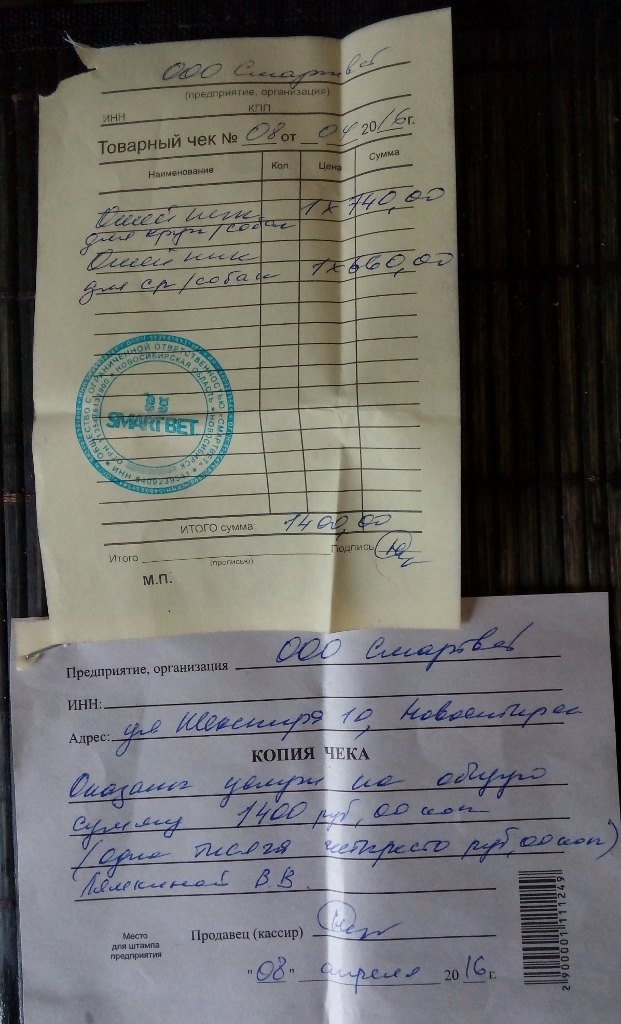 ООО Смартвет
(предприятие, организация)
ИНН КПП
Товарный чек № 08 от 04 2016г.
Наименование Кол. Цена Сумма
Ошейник 1 х 740,00
для круп/собак
Ошейник
для ср/собак 1 х 660,00
ОБЩЕСТВО С ОГРАНИЧЕННОЙ ОТВЕТСТВЕННОСТЬЮ «СМАРТВЕТ»
НОВОСИБИРСКАЯ ОБЛАСТЬ НОВОСИБИРСК
ОГРН
ИНН
SMARTВЕТ
ИТОГО сумма: 1400,00
Итого Подпись
(прописью)
М.П.
Предприятие, организация ООО Смартвет
ИНН:
Адрес: ул 10, Новосибирск
КОПИЯ ЧЕКА
Оказаны услуги на общую
сумму 1400 руб, 00 коп
(одна тысяча четыреста руб, 00 коп)
В В
Место
для штампа
предприятия
Продавец (кассир)
"08" апреля 2016г.
2 900001 111249